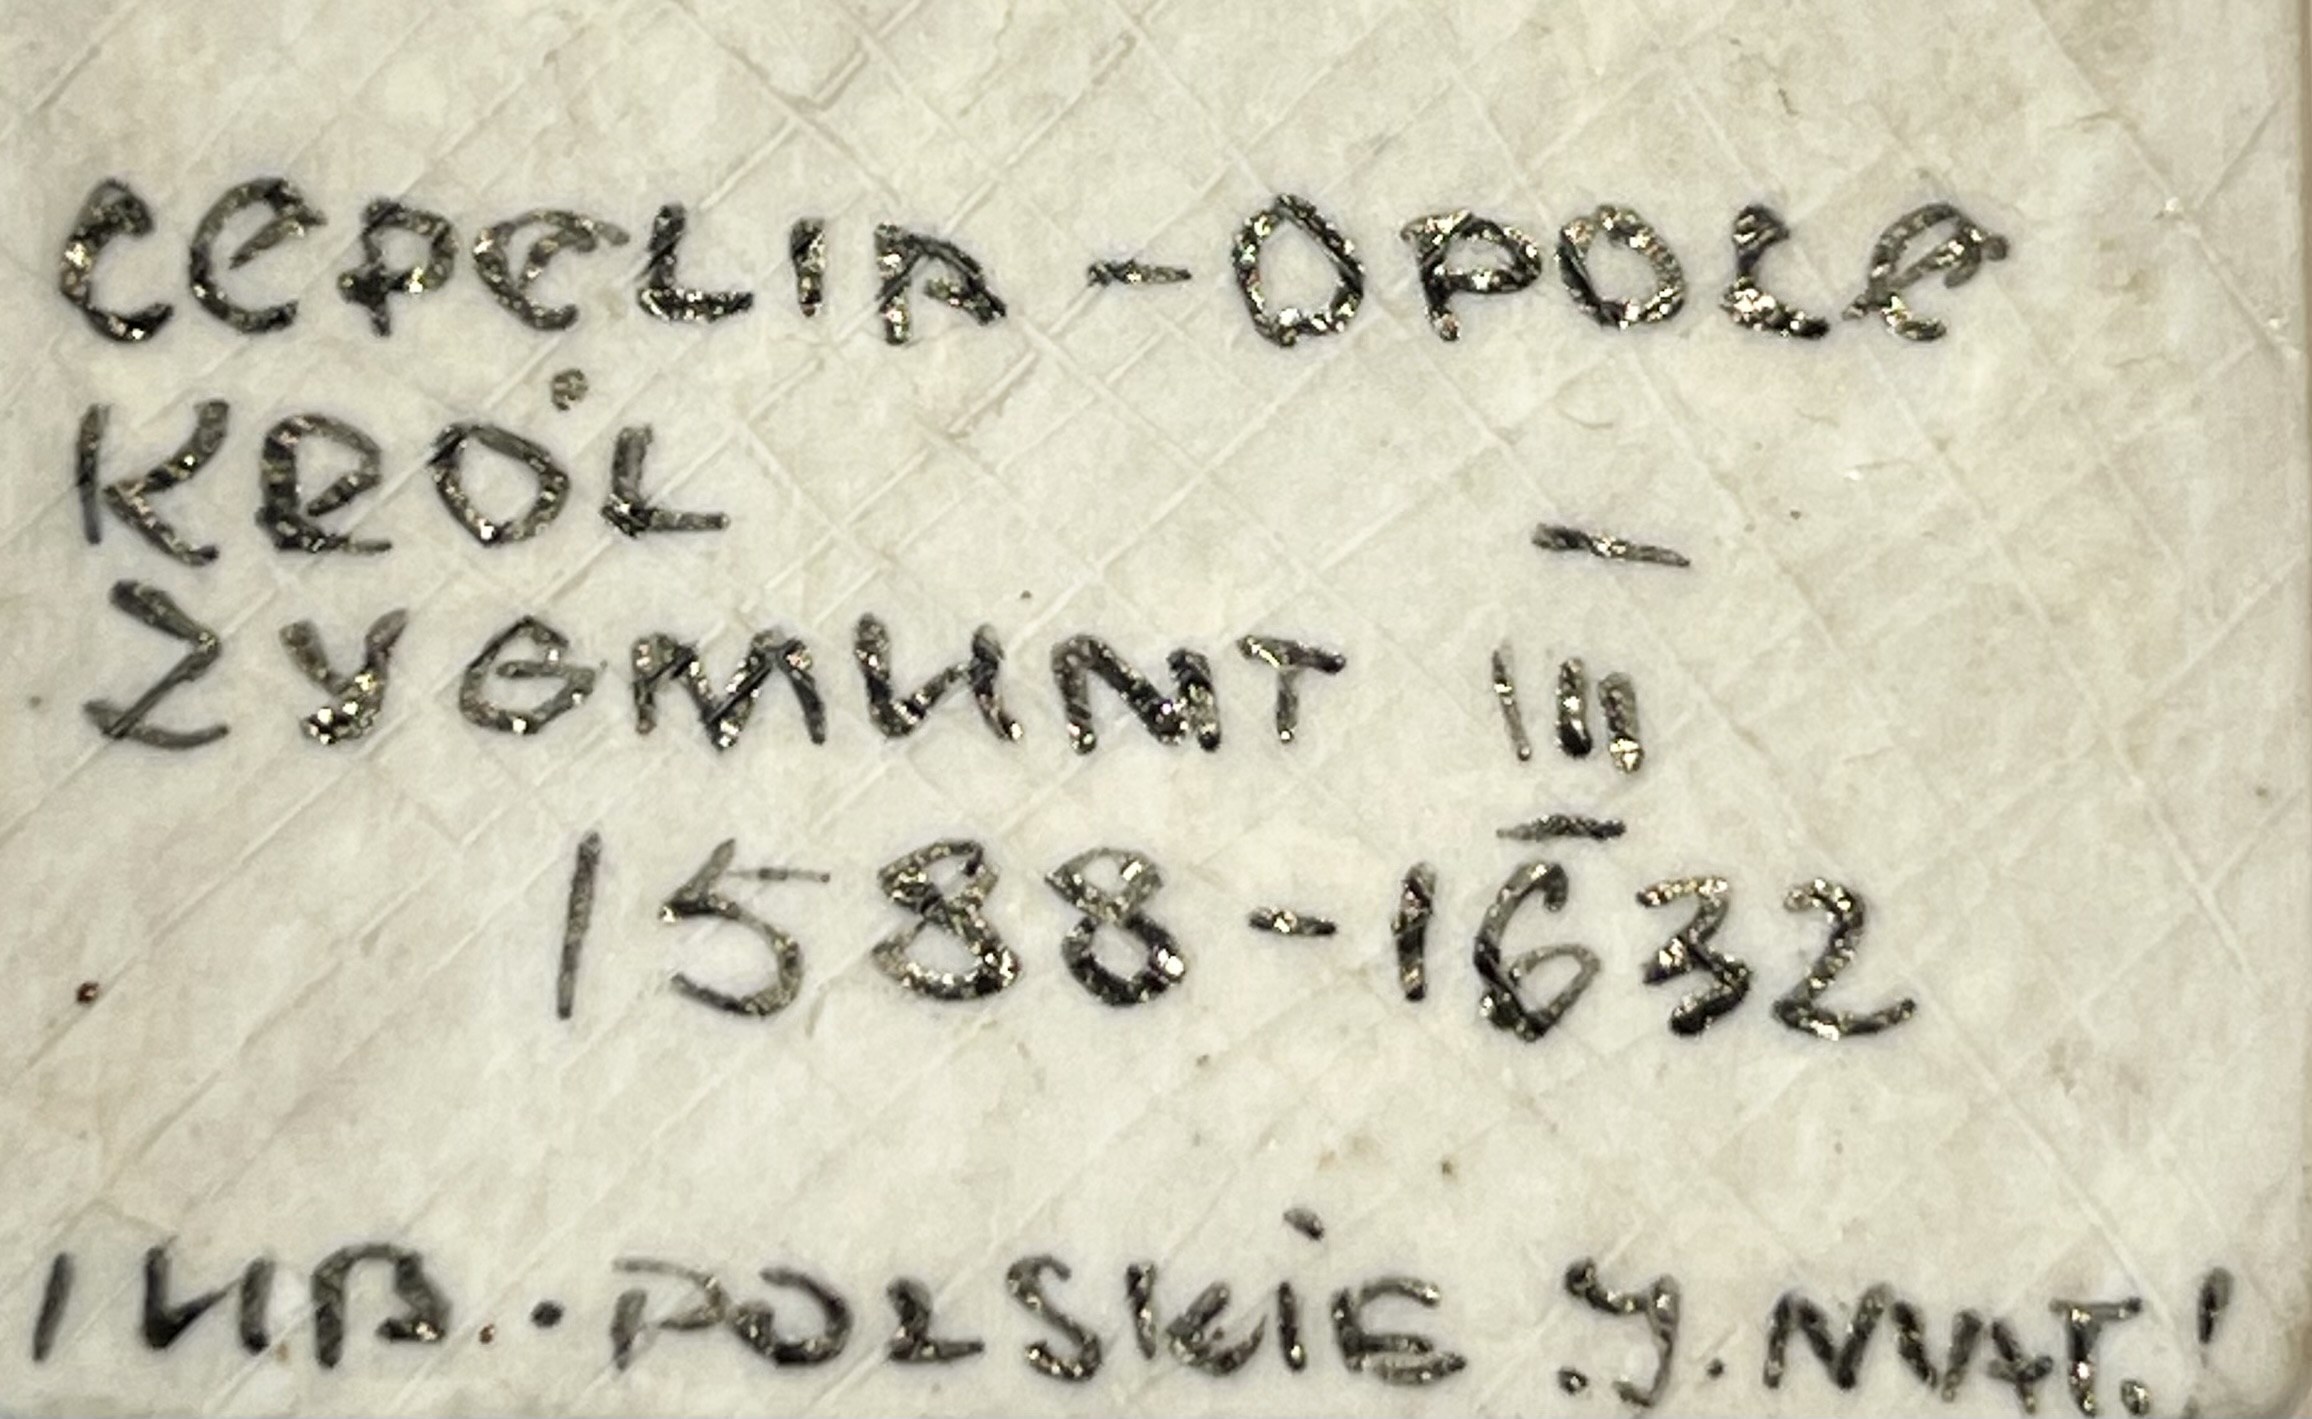 CEPELIA - OPOLE
KRÓL
ZYGMUNT III
1588-1632
POLSKIE J. MAT.